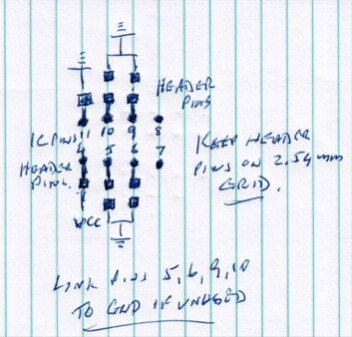 HEADER
PINS
IC PINS 11 10 9 8
4 5 6 7
HEADER
PINS.
VCC
KEEP HEADER
PINS ON 2.54 mm
GRID.
LINK PINS 5, 6, 9, 10
TO GND IF UNUSED